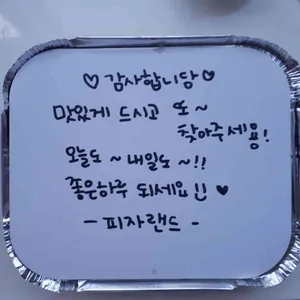 ♡감사합니당♡
맛있게 드시고 또~
찾아주세용!
오늘도~내일도~!!
좋은하루 되세요!! ♥
-피자랜드-